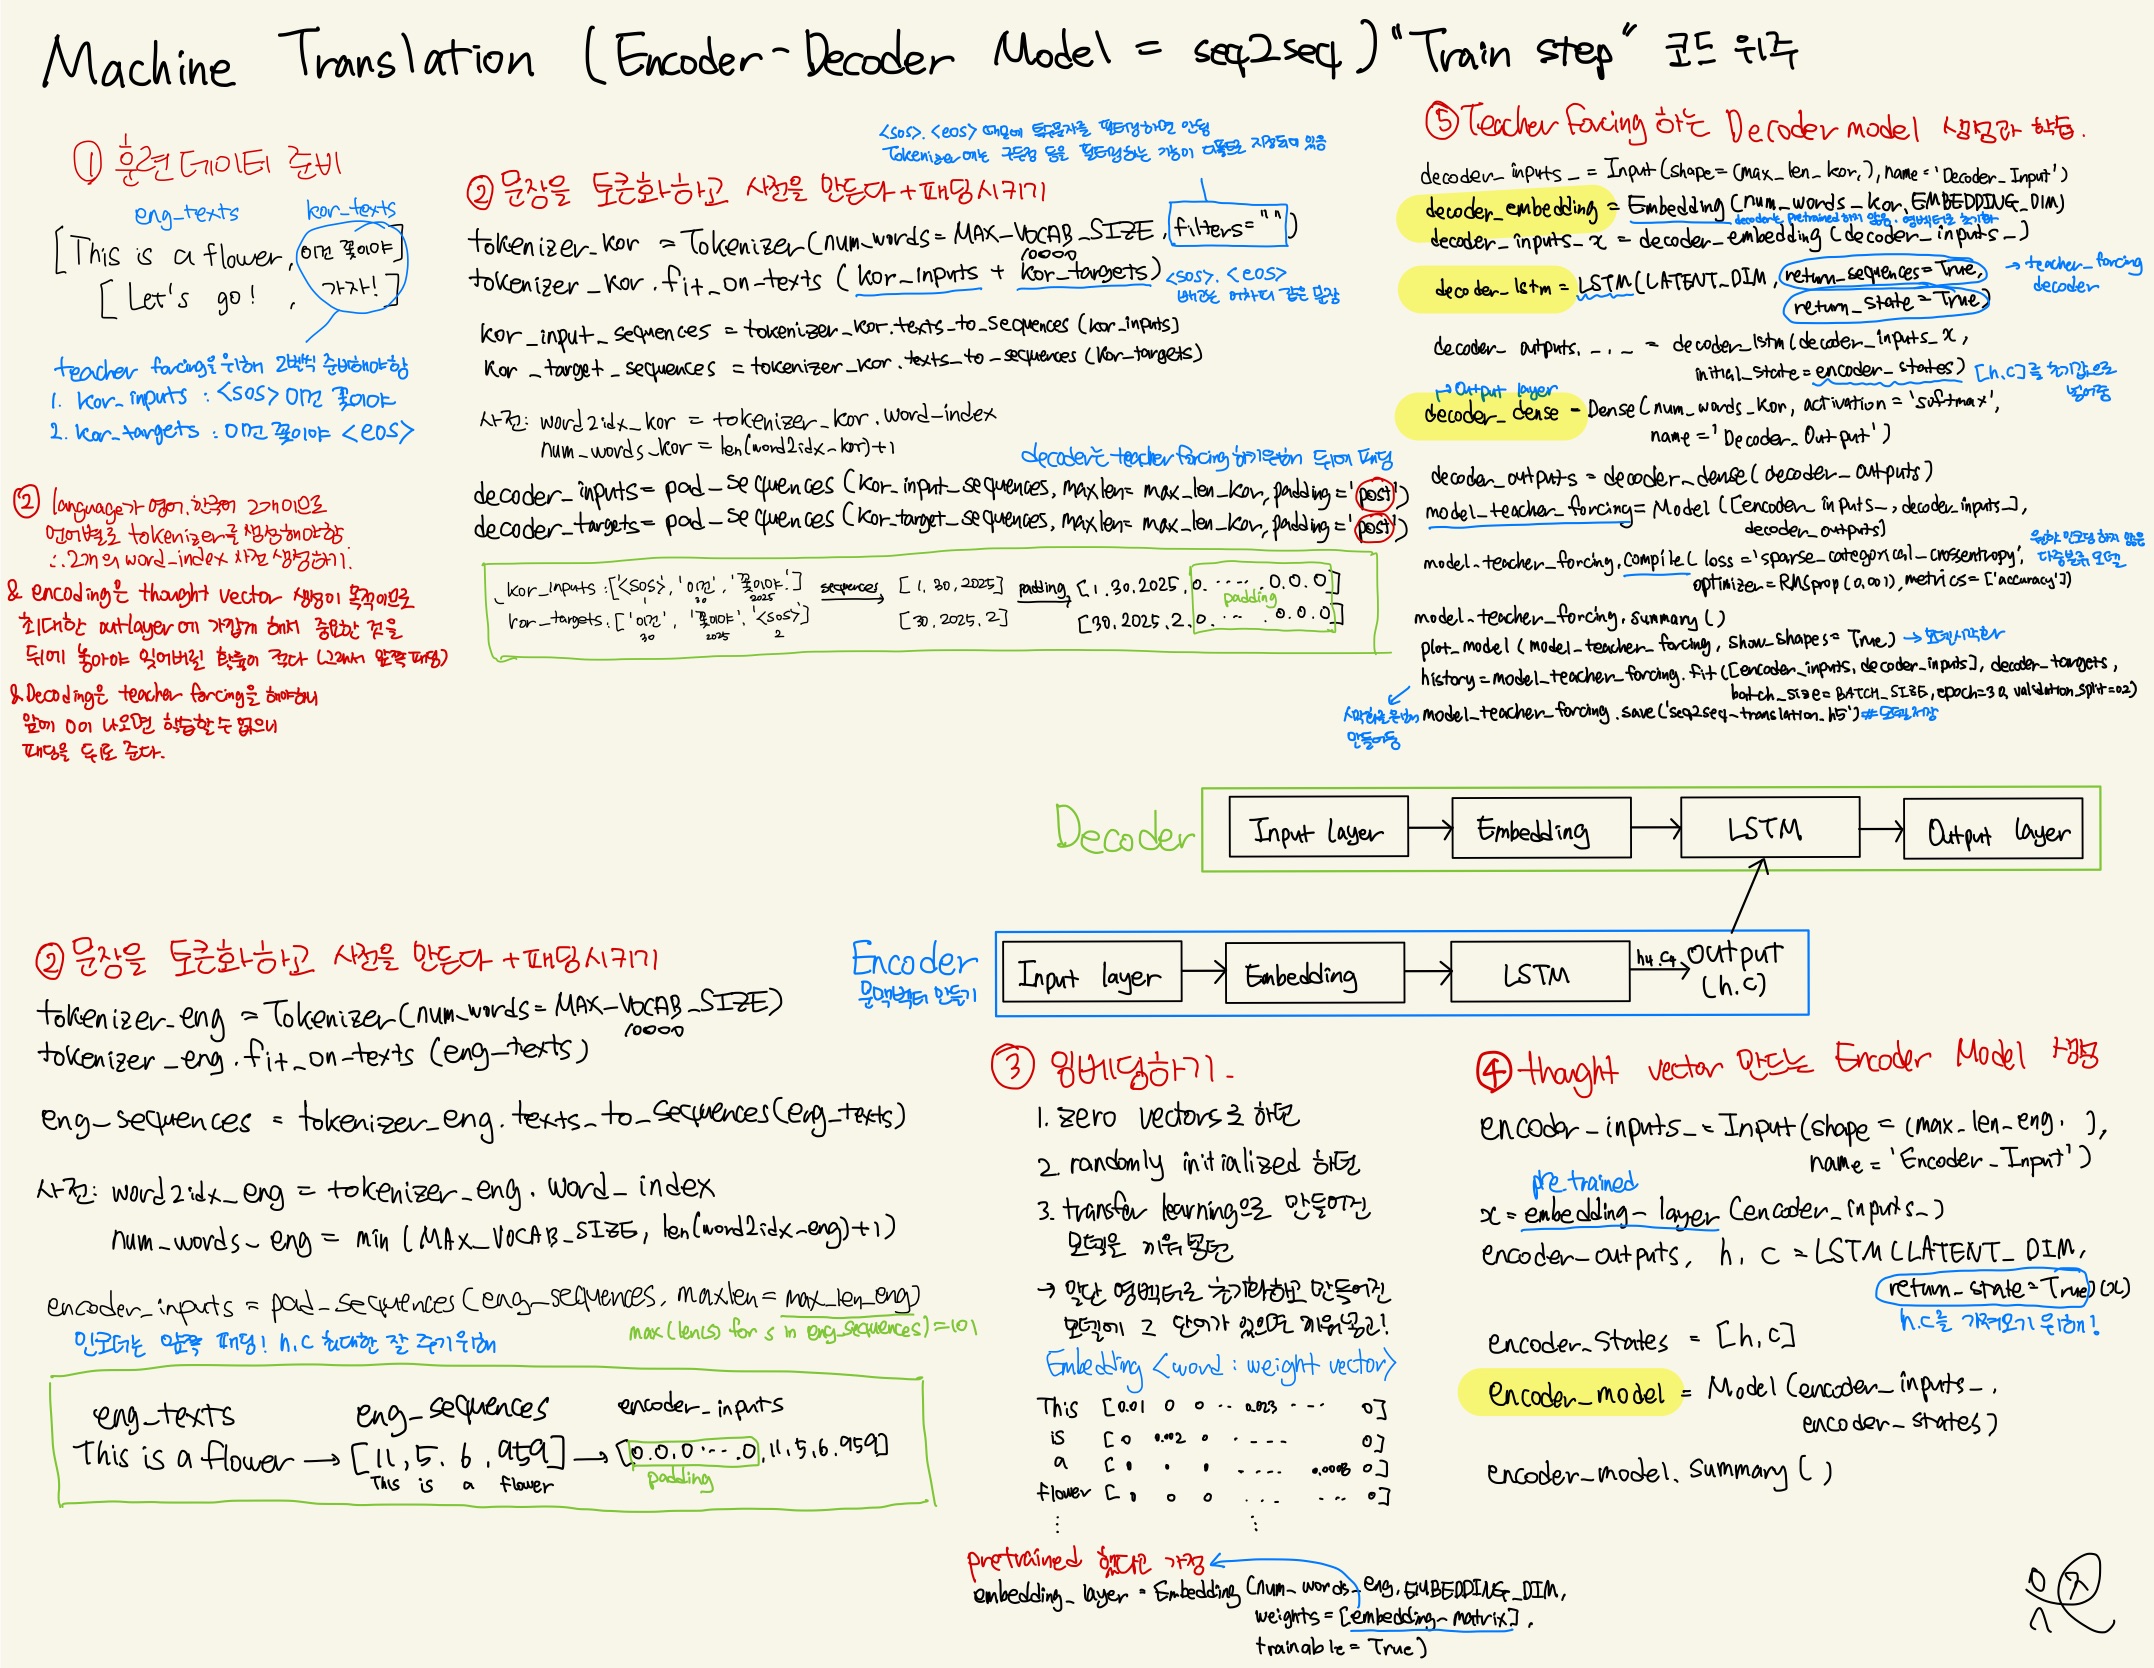 Machine Translation (Encoder-Decoder Model = seq2seq) "Train step" 코드 위주
① 훈련데이터 준비
eng_texts kor_texts
[This is a flower, 이건 꽃이야]
[Let's go! , 가자!]
teacher forcing을 위해 2번씩 준비해야함
1. kor_inputs : <sos> 이건 꽃이야
2. kor_targets : 이건 꽃이야 <eos>
② language가 영어, 한국어 2개이므로
언어별로 tokenizer를 생성해야함
∴ 2개의 word_index 사전 생성하기.
& encoding은 thought vector 생성이 목적이므로
최대한 outlayer에 가깝게 해서 중요한 것을
뒤에 놓아야 잊어버릴 확률이 적다 (그래서 앞쪽 패딩)
& Decoding은 teacher forcing을 해야하니
앞에 0이 나오면 학습할 수 없으니
패딩을 뒤로 준다.
<sos>, <eos> 때문에 특수문자를 필터링하면 안됨
Tokenizer에는 구두점 등을 필터링하는 기능이 디폴트로 지정되어 있음
② 문장을 토큰화하고 사전을 만든다 + 패딩시키기
tokenizer_kor = Tokenizer(num_words=MAX_VOCAB_SIZE, filters="")
10000
tokenizer_kor.fit_on_texts (kor_inputs + kor_targets) <sos>, <eos>
빼고는 어차피 같은 문장
kor_input_sequences = tokenizer_kor.texts_to_sequences (kor_inputs)
kor_target_sequences = tokenizer_kor.texts_to_sequences (kor_targets)
사전: word2idx_kor = tokenizer_kor.word_index
num_words_kor = len(word2idx_kor)+1
decoder는 teacher forcing 하기위해 뒤에 패딩
decoder_inputs = pad_sequences (kor_input_sequences, maxlen= max_len_kor, padding='post')
decoder_targets = pad_sequences (kor_target_sequences, maxlen= max_len_kor, padding='post')
kor_inputs : ['<sos>', '이건', '꽃이야.'] sequences [1, 30, 2025] padding [1, 30, 2025, 0. ..... 0.0.0]
1 30 2025
padding
kor_targets : ['이건', '꽃이야', '<sos>'] [30, 2025, 2] [30, 2025, 2. 0. ... 0.0.0]
30 2025 2
⑤ Teacher forcing 하는 Decoder model 생성과 학습.
decoder_inputs_ = Input(shape=(max_len_kor,), name='Decoder_Input')
decoder_embedding = Embedding (num_words_kor, EMBEDDING_DIM)
decoder는 pretrained 하지 않음. 영벡터로 초기화
decoder_inputs_x = decoder_embedding (decoder_inputs_)
decoder_lstm = LSTM(LATENT_DIM, return_sequences=True, → teacher_forcing
return_state=True) decoder
decoder_outputs, _, _ = decoder_lstm(decoder_inputs_x,
initial_state=encoder_states) [h,c]를 초기값으로
넣어줌
→ Output layer
decoder_dense = Dense(num_words_kor, activation='softmax',
name='Decoder_Output')
decoder_outputs = decoder_dense(decoder_outputs)
model_teacher_forcing = Model ([encoder_inputs_, decoder_inputs_],
decoder_outputs)
model_teacher_forcing.compile( loss='sparse_categorical_crossentropy', 원핫 인코딩 하지 않은
다중분류 모델
optimizer=RMSprop(0,001), metrics=['accuracy'])
model_teacher_forcing.summary()
plot_model (model_teacher_forcing, show_shapes=True) → 모델시각화
history = model_teacher_forcing.fit ([encoder_inputs, decoder_inputs], decoder_targets,
batch_size=BATCH_SIZE, epoch=30, validation_split=0.2)
시각화를 위해
만들어둠
model_teacher_forcing.save('seq2seq_translation_h5') # 모델저장
Decoder Input layer Embedding LSTM Output layer
Encoder Input layer Embedding LSTM h4.c4 output
문맥벡터 만들기 (h.c)
② 문장을 토큰화하고 사전을 만든다 + 패딩시키기
tokenizer_eng = Tokenizer(num_words=MAX_VOCAB_SIZE)
10000
tokenizer_eng.fit_on_texts (eng_texts)
eng_sequences = tokenizer_eng.texts_to_sequences(eng_texts)
사전: word2idx_eng = tokenizer_eng.word_index
num_words_eng = min (MAX_VOCAB_SIZE, len(word2idx_eng)+1)
encoder_inputs = pad_sequences (eng_sequences, maxlen=max_len_eng)
max(len(s) for s in eng_sequences)=101
인코더는 앞쪽 패딩! h,c 최대한 잘 주기위해
eng_texts eng_sequences encoder_inputs
This is a flower → [11, 5. 6, 959] → [0.0.0....0, 11, 5, 6, 959]
This is a flower padding
③ 임베딩하기.
1. zero vectors로 하던
2. randomly initialized 하던
3. transfer learning으로 만들어진
모델을 끼워넣던
→ 일단 영벡터로 초기화하고 만들어진
모델에 그 단어가 있으면 끼워넣고!
Embedding <word : weight vector>
This [0.01 0 0 .. 0.023 ... 0]
is [0 0.002 0 .... 0]
a [0 0 0 .... 0.0008 0]
flower [0 0 0 ... ... 0]
pretrained 했다고 가정
embedding_layer = Embedding (num_words_eng, EMBEDDING_DIM,
weights=[embedding_matrix],
trainable=True)
④ thought vector 만드는 Encoder Model 생성
encoder_inputs_ = Input(shape = (max_len_eng, ),
name='Encoder_Input')
pretrained
x = embedding_layer (encoder_inputs_)
encoder_outputs, h, c = LSTM (LATENT_DIM,
return_state=True)(x)
h.c를 가져오기 위해!
encoder_states = [h,c]
encoder_model = Model (encoder_inputs_,
encoder_states)
encoder_model.summary()